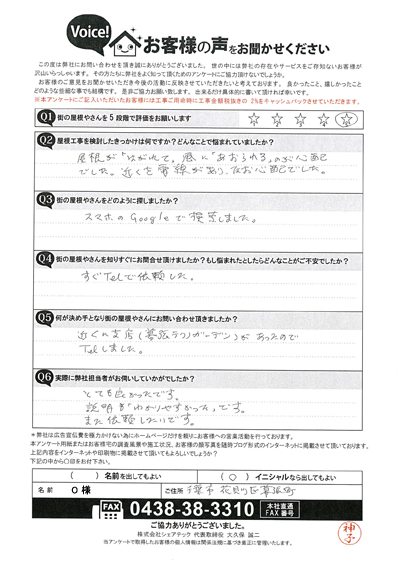 Voice!
お客様の声をお聞かせください
この度は弊社にお問い合わせを頂き誠にありがとうございました。世の中には弊社の存在やサービスをご存知ないお客様が
沢山いらっしゃいます。その方たちに弊社をよく知って頂くためのアンケートにご協力頂けないでしょうか。
お客様のご意見をお聞かせいただき今後の活動に反映させていただきたいと考えております。良かったこと、嬉しかったこと
どのような些細な事でも結構です。是非ご協力お願い致します。出来るだけ具体的に書いて頂ければ幸いです。
※本アンケートにご記入いただいたお客様には工事ご用命時に工事金額税抜きの2%をキャッシュバックさせていただきます。
Q1 街の屋根やさんを5段階で評価をお願いします
Q2 屋根工事を検討したきっかけは何ですか?どんなことで悩まれていましたか?
屋根が「はがれて」、風に「あおられる」のが心配
でした。近くを電線があり、なお心配でした。
Q3 街の屋根やさんをどのように探しましたか?
スマホのGoogleで検索しました。
Q4 街の屋根やさんを知りすぐにお問合せ頂けましたか?もし悩まれたとしたらどんなことがご不安でしたか?
すぐTelで依頼した。
Q5 何が決め手となり街の屋根やさんにお問い合わせ頂きましたか?
近くに支店(幕張テクノガーデン)があったので
Telしました。
Q6 実際に弊社担当者がお伺いしていかがでしたか?
とても良かったです。
説明が「わかりやすかった」です。
また依頼したいです。
＊弊社は広告宣伝費を極力かけない為にホームページだけを頼りにお客様への営業活動を行っております。
本アンケート用紙またはお客様宅の調査風景や施工状況、お客様の顔写真を随時ブログ形式のインターネットに掲載させて頂いております。
上記内容をインターネットや印刷物に掲載させて頂いてもよろしいでしょうか?
下記の中から〇印をお付け下さい。
( )名前を出してもよい (○)イニシャルなら出してもよい
名前 O様 ご住所 千葉市 花見川区幕張町
FAX 0438-38-3310 本社直通 FAX番号
ご協力ありがとうございました。
株式会社シェアテック 代表取締役 大久保 誠二
当アンケートで取得したお客様の個人情報は関係法令に基づき厳正に管理いたします。